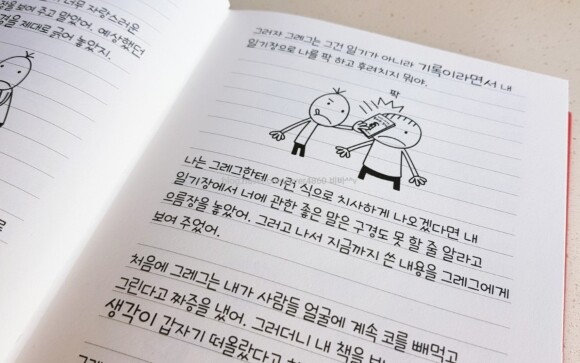 너무 자랑스러운
을 보여 주고 말았어. 예상했던
을 제대로 긁어 놓았지.
그러자 그레그는 그건 일기가 아니라 기록이라면서 내
일기장으로 나를 팍 하고 후려치지 뭐야.
팍
나는 그레그한테 이런 식으로 치사하게 나오겠다면 내
일기장에서 너에 관한 좋은 말은 구경도 못 할 줄 알라고
으름장을 놓았어. 그러고 나서 지금까지 쓴 내용을 그레그에게
보여 주었어.
처음에 그레그는 내가 사람들 얼굴에 계속 코를 빼먹고
그린다고 짜증을 냈어. 그러더니 내 책을
생각이 갑자기 떠올랐다고